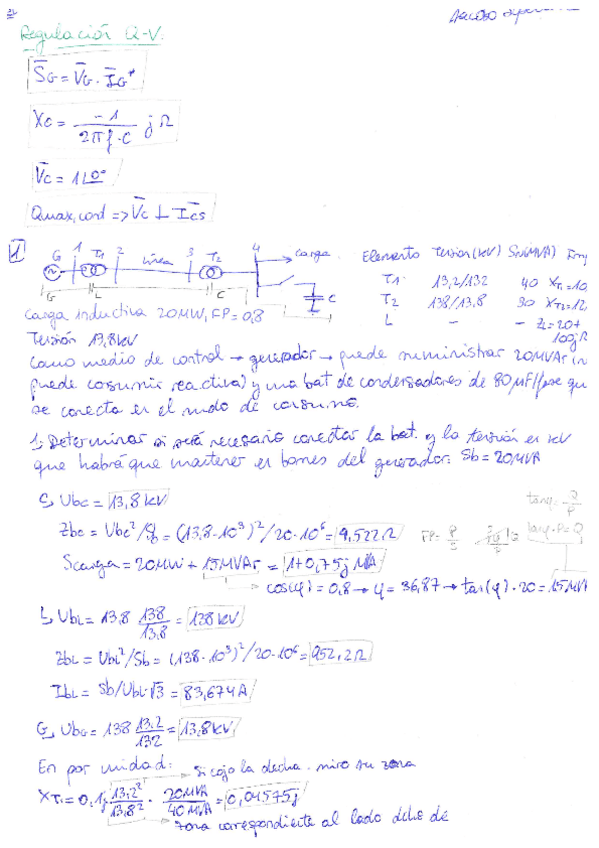 Regulación Q-V:
S̄G = V̄G · ĪG*
Xc = -1 / 2πf·C j Ω
V̄c = 1∟0°
Qmax,cond => V̄c ⊥ Īcs
1
G 1 T1 2 Línea 3 T2 4 carga
G L C C
Elemento Tensión(kV) Sn(MVA)
T1 13,2/132 40 XT1=10
T2 138/13,8 30 XT2=12,
L - - ZL=20+
100jΩ
Carga inductiva 20MW, FP=0,8
Tensión 13,8kV
Como medio de control → generador → puede suministrar 20MVAr (n
puede consumir reactiva) y una bat de condensadores de 80µF/fase que
se conecta en el nudo de consumo.
1; Determinar si será necesario conectar la bat. y la tensión en kV
que habrá que mantener en bornes del generador: Sb=20MVA
C, Ubc = 13,8kV
Zbc = Ubc²/Sb = (13,8·10³)²/20·10⁶ = 9,522Ω
FP= P/S
tang= Q/P
tang·P=Q
Scarga = 20MW + 15MVAr = 1+0,75j MVA
cos(φ) = 0,8 → φ = 36,87 → tan(φ)·20 = 15MVA
L, UbL = 13,8 138/13,8 = 138kV
ZbL = UbL²/Sb = (138·10³)²/20·10⁶ = 952,2Ω
IbL = Sb/UbL·√3 = 83,674A
G, UbG = 138 13,2/132 = 13,8kV
En por unidad: Si cojo la dcha. miro su zona
XT1 = 0,1j 13,2²/13,8² · 20MVA/40MVA = 0,04575j
zona correspondiente al lado dcho de